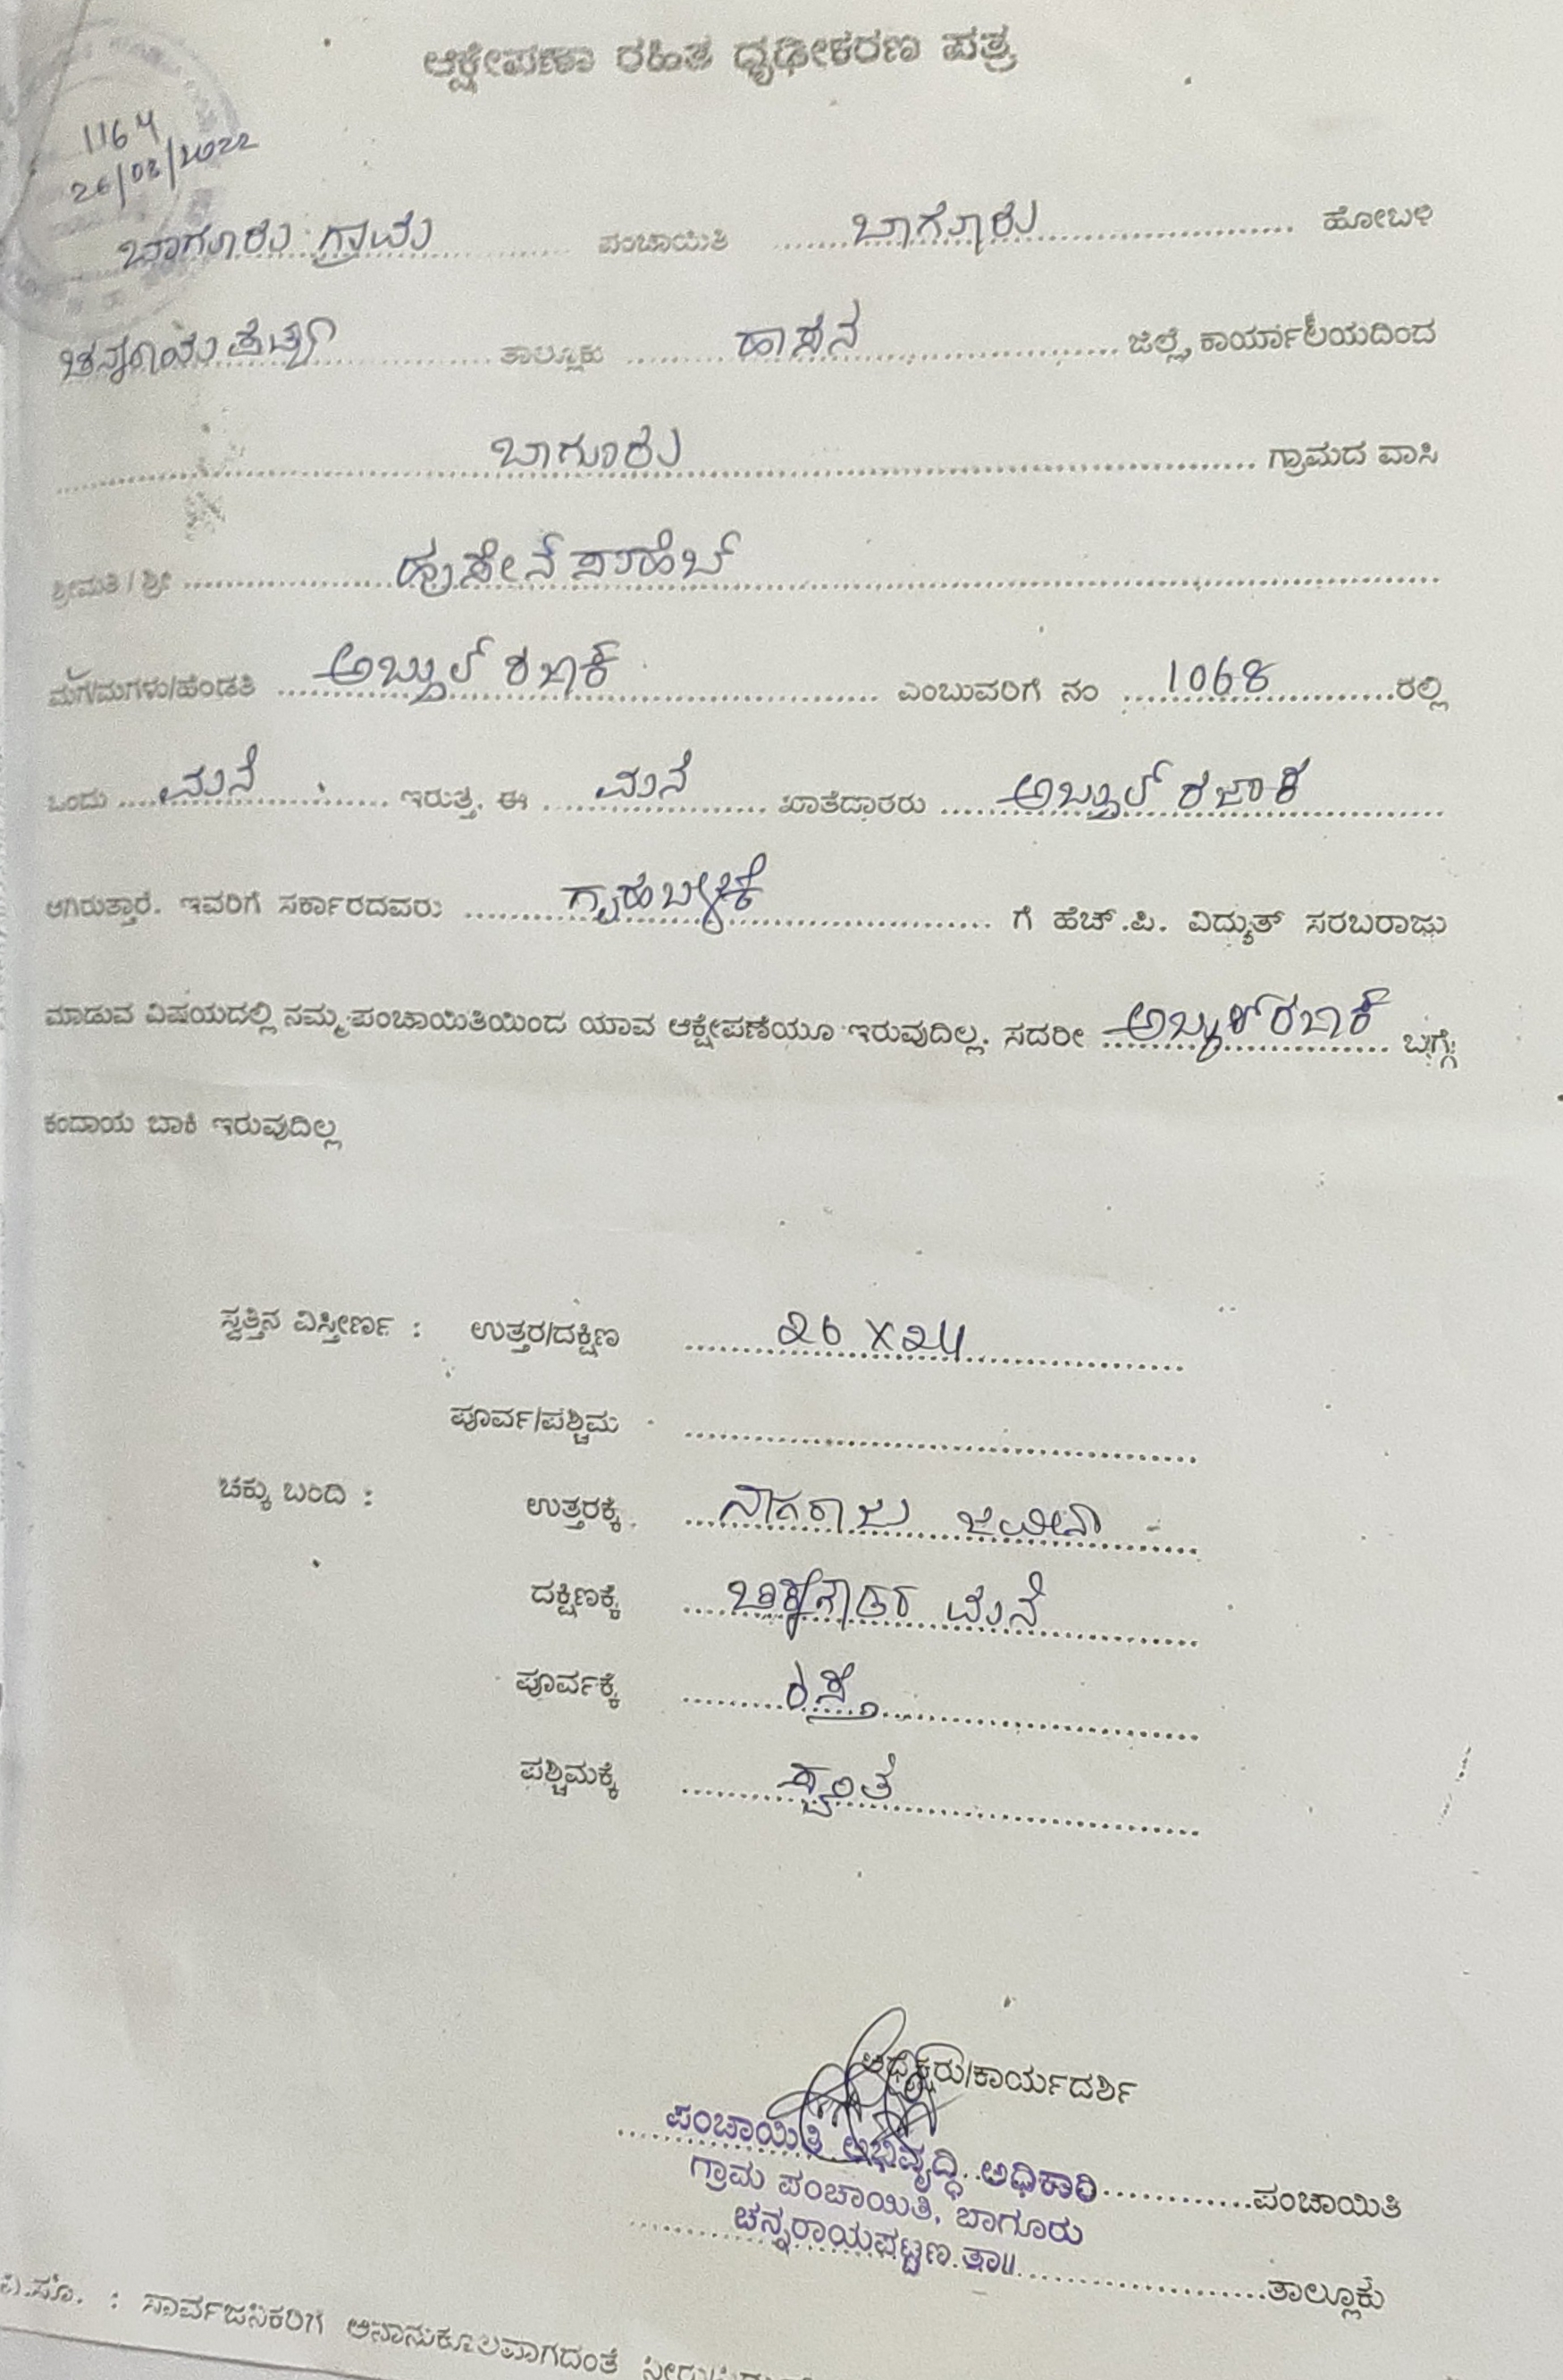 ಆಕ್ಷೇಪಣಾ ರಹಿತ ಧೃಢೀಕರಣ ಪತ್ರ
1164
26/02/2022
ಬಾಗೂರು ಗ್ರಾಮ ಪಂಚಾಯಿತಿ ಬಾಗೂರು ಹೋಬಳಿ
ತಾಲ್ಲೂಕು ಹಾಸನ ಜಿಲ್ಲೆ, ಕಾರ್ಯಾಲಯದಿಂದ
ಬಾಗೂರು ಗ್ರಾಮದ ವಾಸಿ
ಶ್ರೀಮತಿ / ಶ್ರೀ ಹುಸೇನ್ ಸಾಹೆಬ್
ಮಗ/ಮಗಳು/ಹೆಂಡತಿ ಅಬ್ದುಲ್ ರಜಾಕ್ ಎಂಬುವರಿಗೆ ನಂ 1068 ರಲ್ಲಿ
ಒಂದು ಮನೆ ಇರುತ್ತ. ಈ ಮನೆ ಖಾತೆದಾರರು ಅಬ್ದುಲ್ ರಜಾಕ
ಆಗಿರುತ್ತಾರೆ. ಇವರಿಗೆ ಸರ್ಕಾರದವರು ಗೃಹಬಳಕೆ ಗೆ ಹೆಚ್.ಪಿ. ವಿದ್ಯುತ್ ಸರಬರಾಜು
ಮಾಡುವ ವಿಷಯದಲ್ಲಿ ನಮ್ಮ ಪಂಚಾಯಿತಿಯಿಂದ ಯಾವ ಆಕ್ಷೇಪಣೆಯೂ ಇರುವುದಿಲ್ಲ. ಸದರೀ ಅಬ್ದುಲ್ ರಜಾಕ್ ಬಗ್ಗೆ
ಕಂದಾಯ ಬಾಕಿ ಇರುವುದಿಲ್ಲ
ಸ್ವತ್ತಿನ ವಿಸ್ತೀರ್ಣ : ಉತ್ತರ/ದಕ್ಷಿಣ 26 X 24
ಪೂರ್ವ/ಪಶ್ಚಿಮ
ಚಕ್ಕು ಬಂದಿ : ಉತ್ತರಕ್ಕೆ ನಾಗರಾಜು ಜಮೀನು
ದಕ್ಷಿಣಕ್ಕೆ ಮನೆ
ಪೂರ್ವಕ್ಕೆ ರಸ್ತೆ
ಪಶ್ಚಿಮಕ್ಕೆ ಸ್ವಂತ
ಅಧ್ಯಕ್ಷರು/ಕಾರ್ಯದರ್ಶಿ
ಪಂಚಾಯಿತಿ ಅಭಿವೃದ್ಧಿ ಅಧಿಕಾರಿ ಪಂಚಾಯಿತಿ
ಗ್ರಾಮ ಪಂಚಾಯಿತಿ, ಬಾಗೂರು
ಚನ್ನರಾಯಪಟ್ಟಣ ತಾ|| ತಾಲ್ಲೂಕು
ವಿ.ಸೂ. : ಸಾರ್ವಜನಿಕರಿಗೆ ಅನಾನುಕೂಲವಾಗದಂತೆ